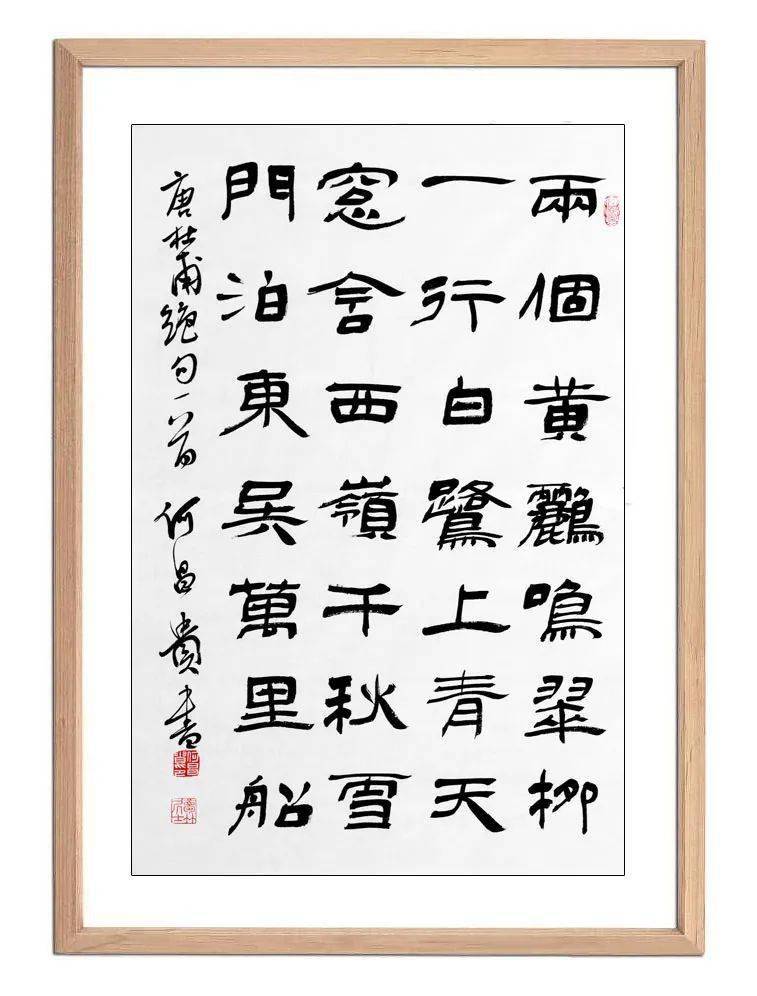 兩個黄鸝鳴翠柳
一行白鷺上青天
窓含西嶺千秋雪
門泊東吳萬里船
唐杜甫絕句一首 何昌貴書